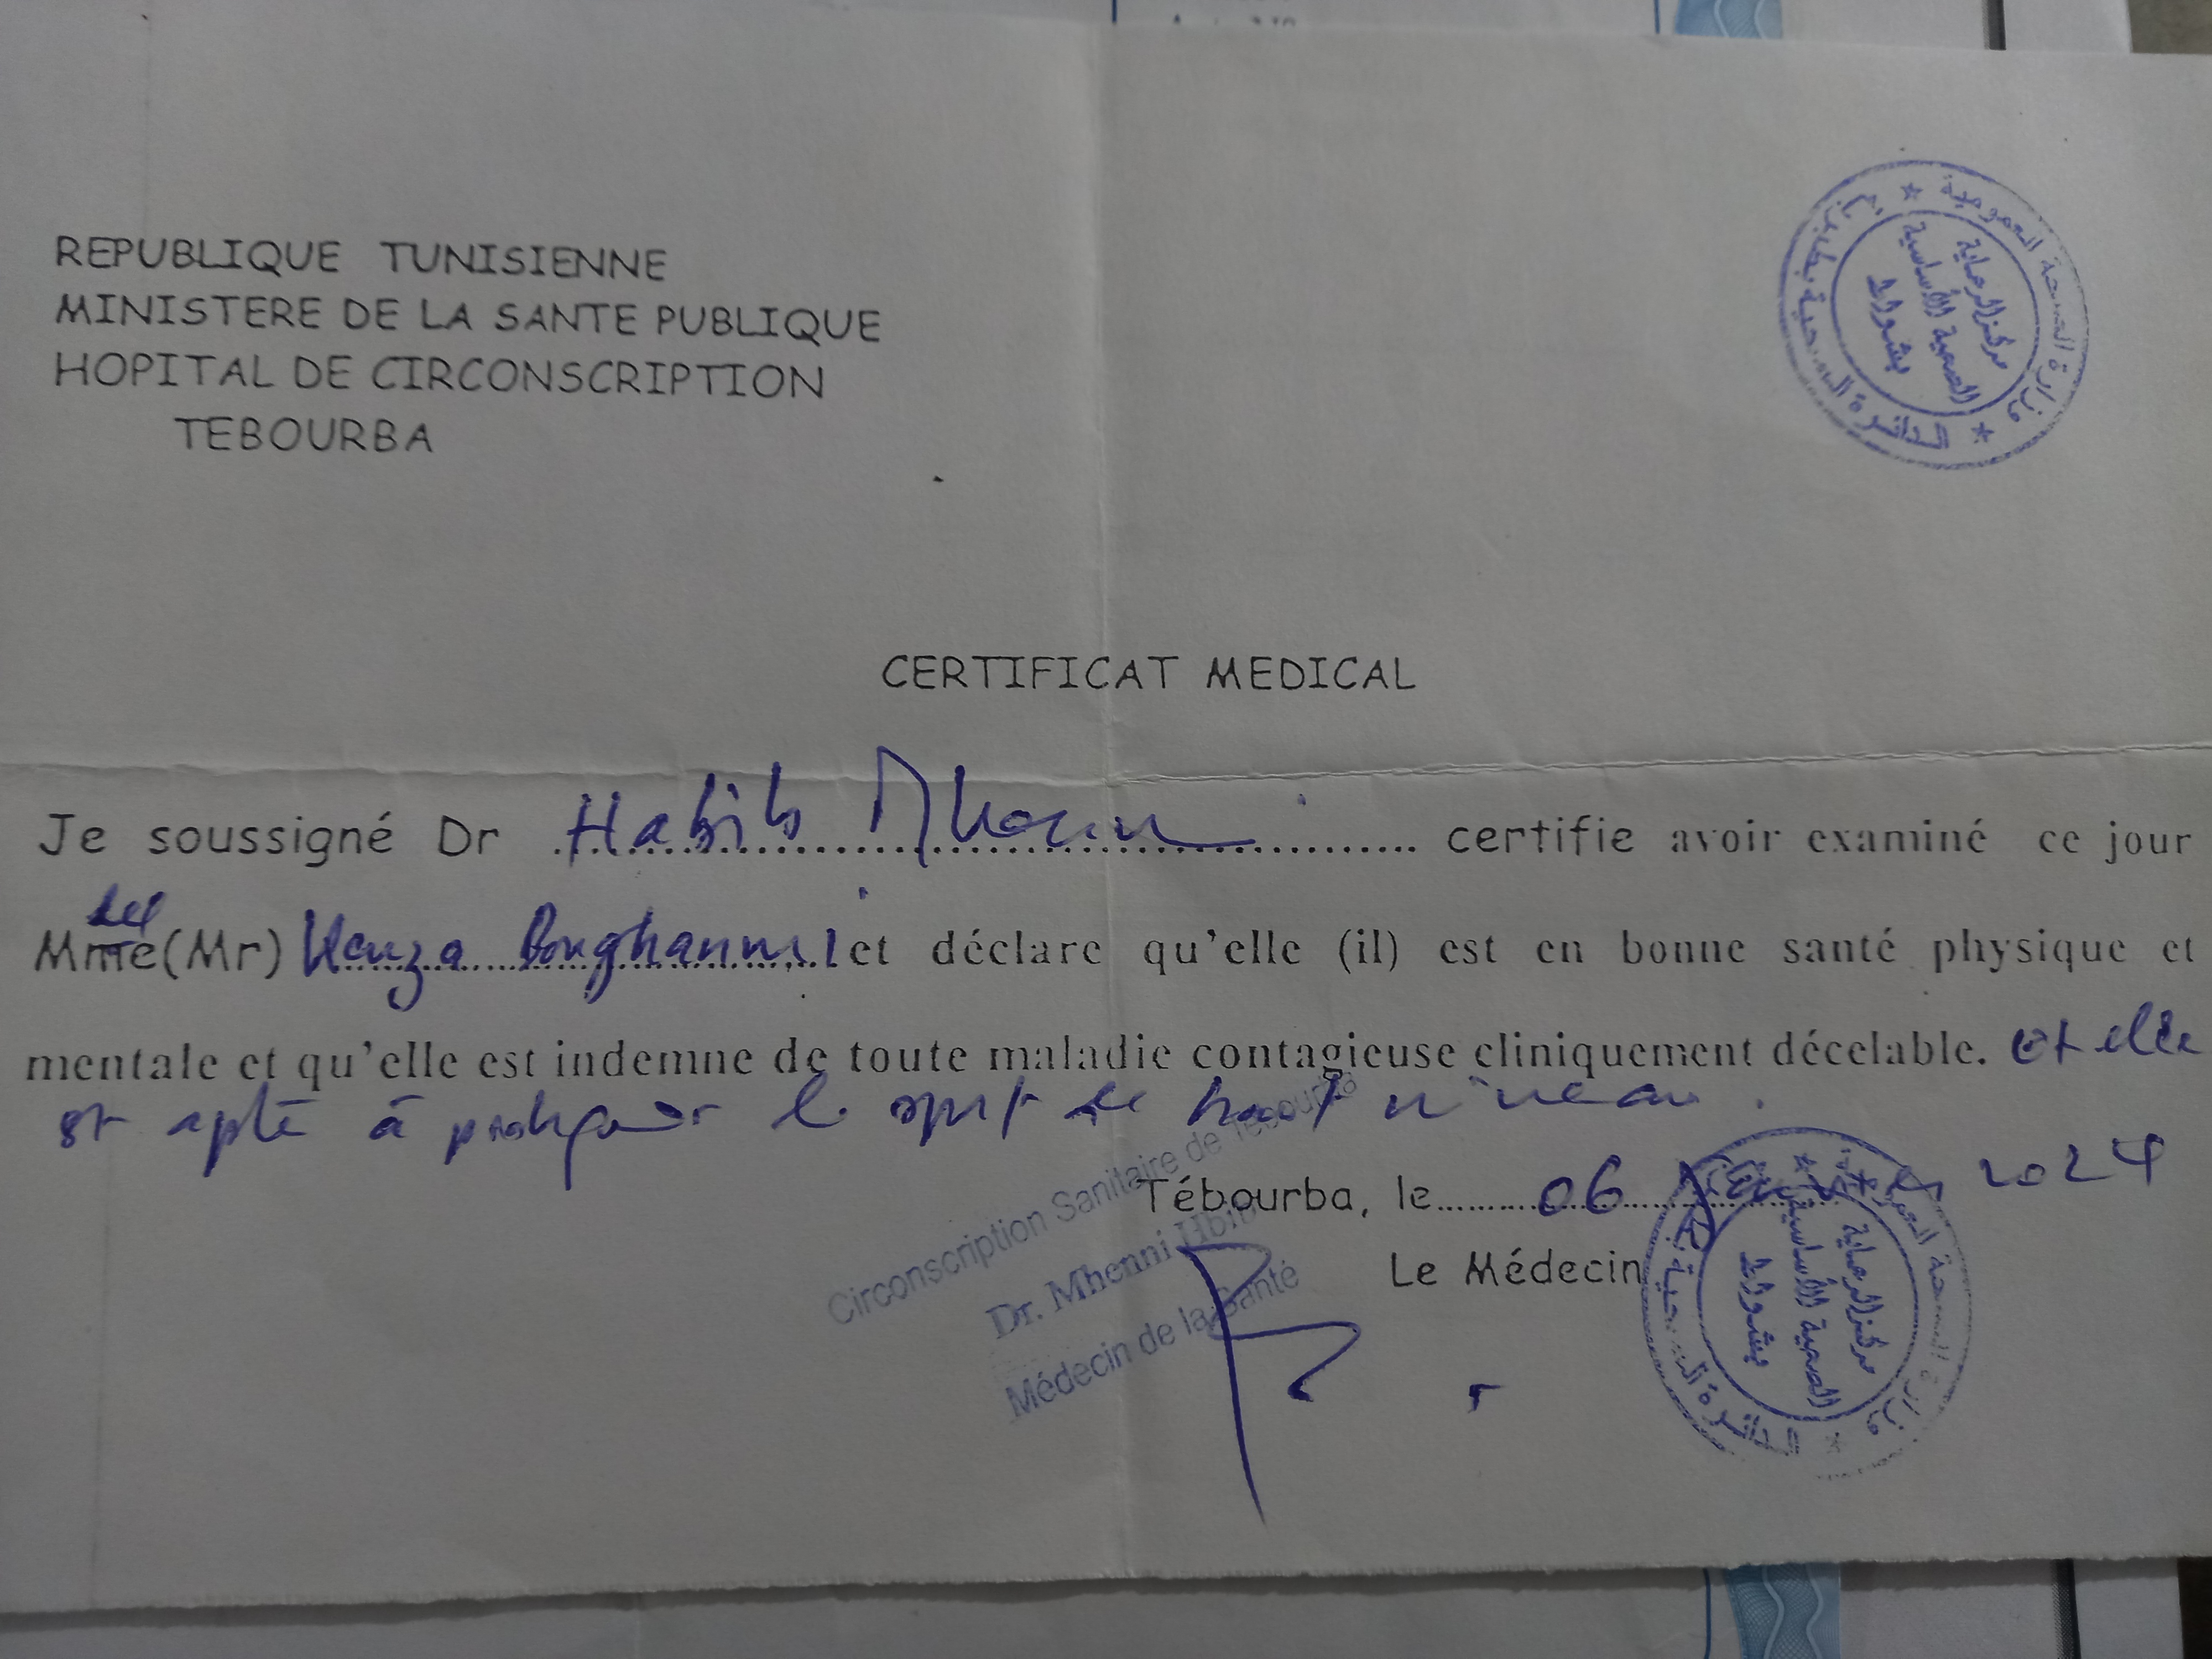 REPUBLIQUE TUNISIENNE
MINISTERE DE LA SANTE PUBLIQUE
HOPITAL DE CIRCONSCRIPTION
TEBOURBA
وزارة الصحة العمومية
الدائرة الصحية بطبربة
مركز الرعاية
الصحية الأساسية
بشواط
CERTIFICAT MEDICAL
Je soussigné Dr Habib certifie avoir examiné ce jour
lle
Mme(Mr) Kenza Boughanmi et déclare qu'elle (il) est en bonne santé physique et
mentale et qu'elle est indemne de toute maladie contagieuse cliniquement décelable. et elle
est apte à pratiquer le sport de haut niveau.
Tébourba, le 06 2024
Le Médecin
Circonscription Sanitaire de Tebourba
Dr. Mhenni Hbib
Médecin de la Santé
مركز الرعاية
الصحية الأساسية
بشواط